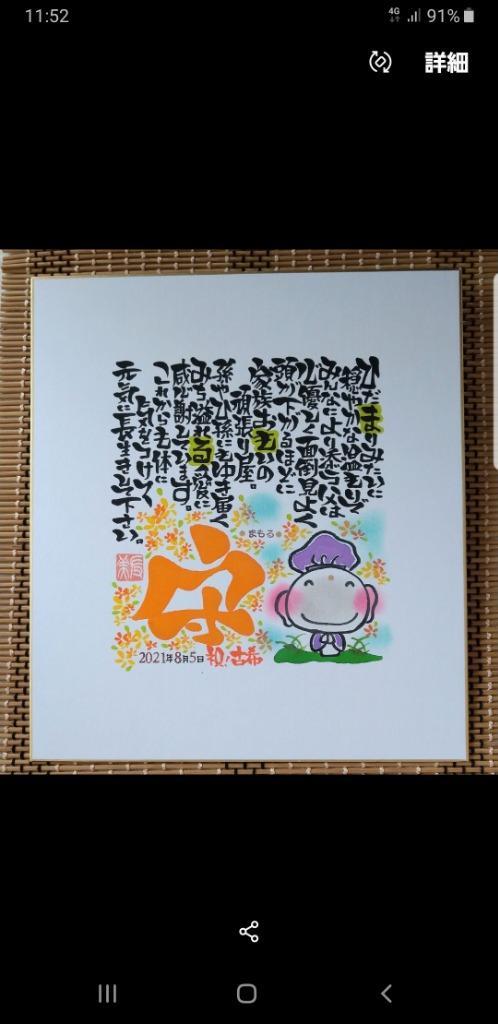 11:52 4G 91%
詳細
ひだまりみたいに
穏やかな温もりで
みんなにより添う
心優しく面倒見よく
頭が下がるほどに
家族おもいの
頑張り屋。
孫やひ孫にもゆき届く
みち溢れる愛に
これからも体に
気をつけて
元気に長生きして下さい。
まもる
守
2021年8月5日 祝!古希